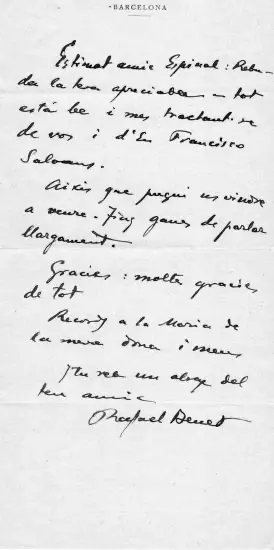 -BARCELONA
Estimat amic Espinal: Rebu-
da la teva apreciable — tot
està be i mes tractant-se
de vos i d'En Francisco
Salovans.
Aixis que pugui us vindre
a veure. Tinc ganes de parlar
llargament.
Gracies: moltes gracies
de tot
Records a la Maria de
la meva dona i meus
i tu reb un abraç del
teu amic
Rafael Benet